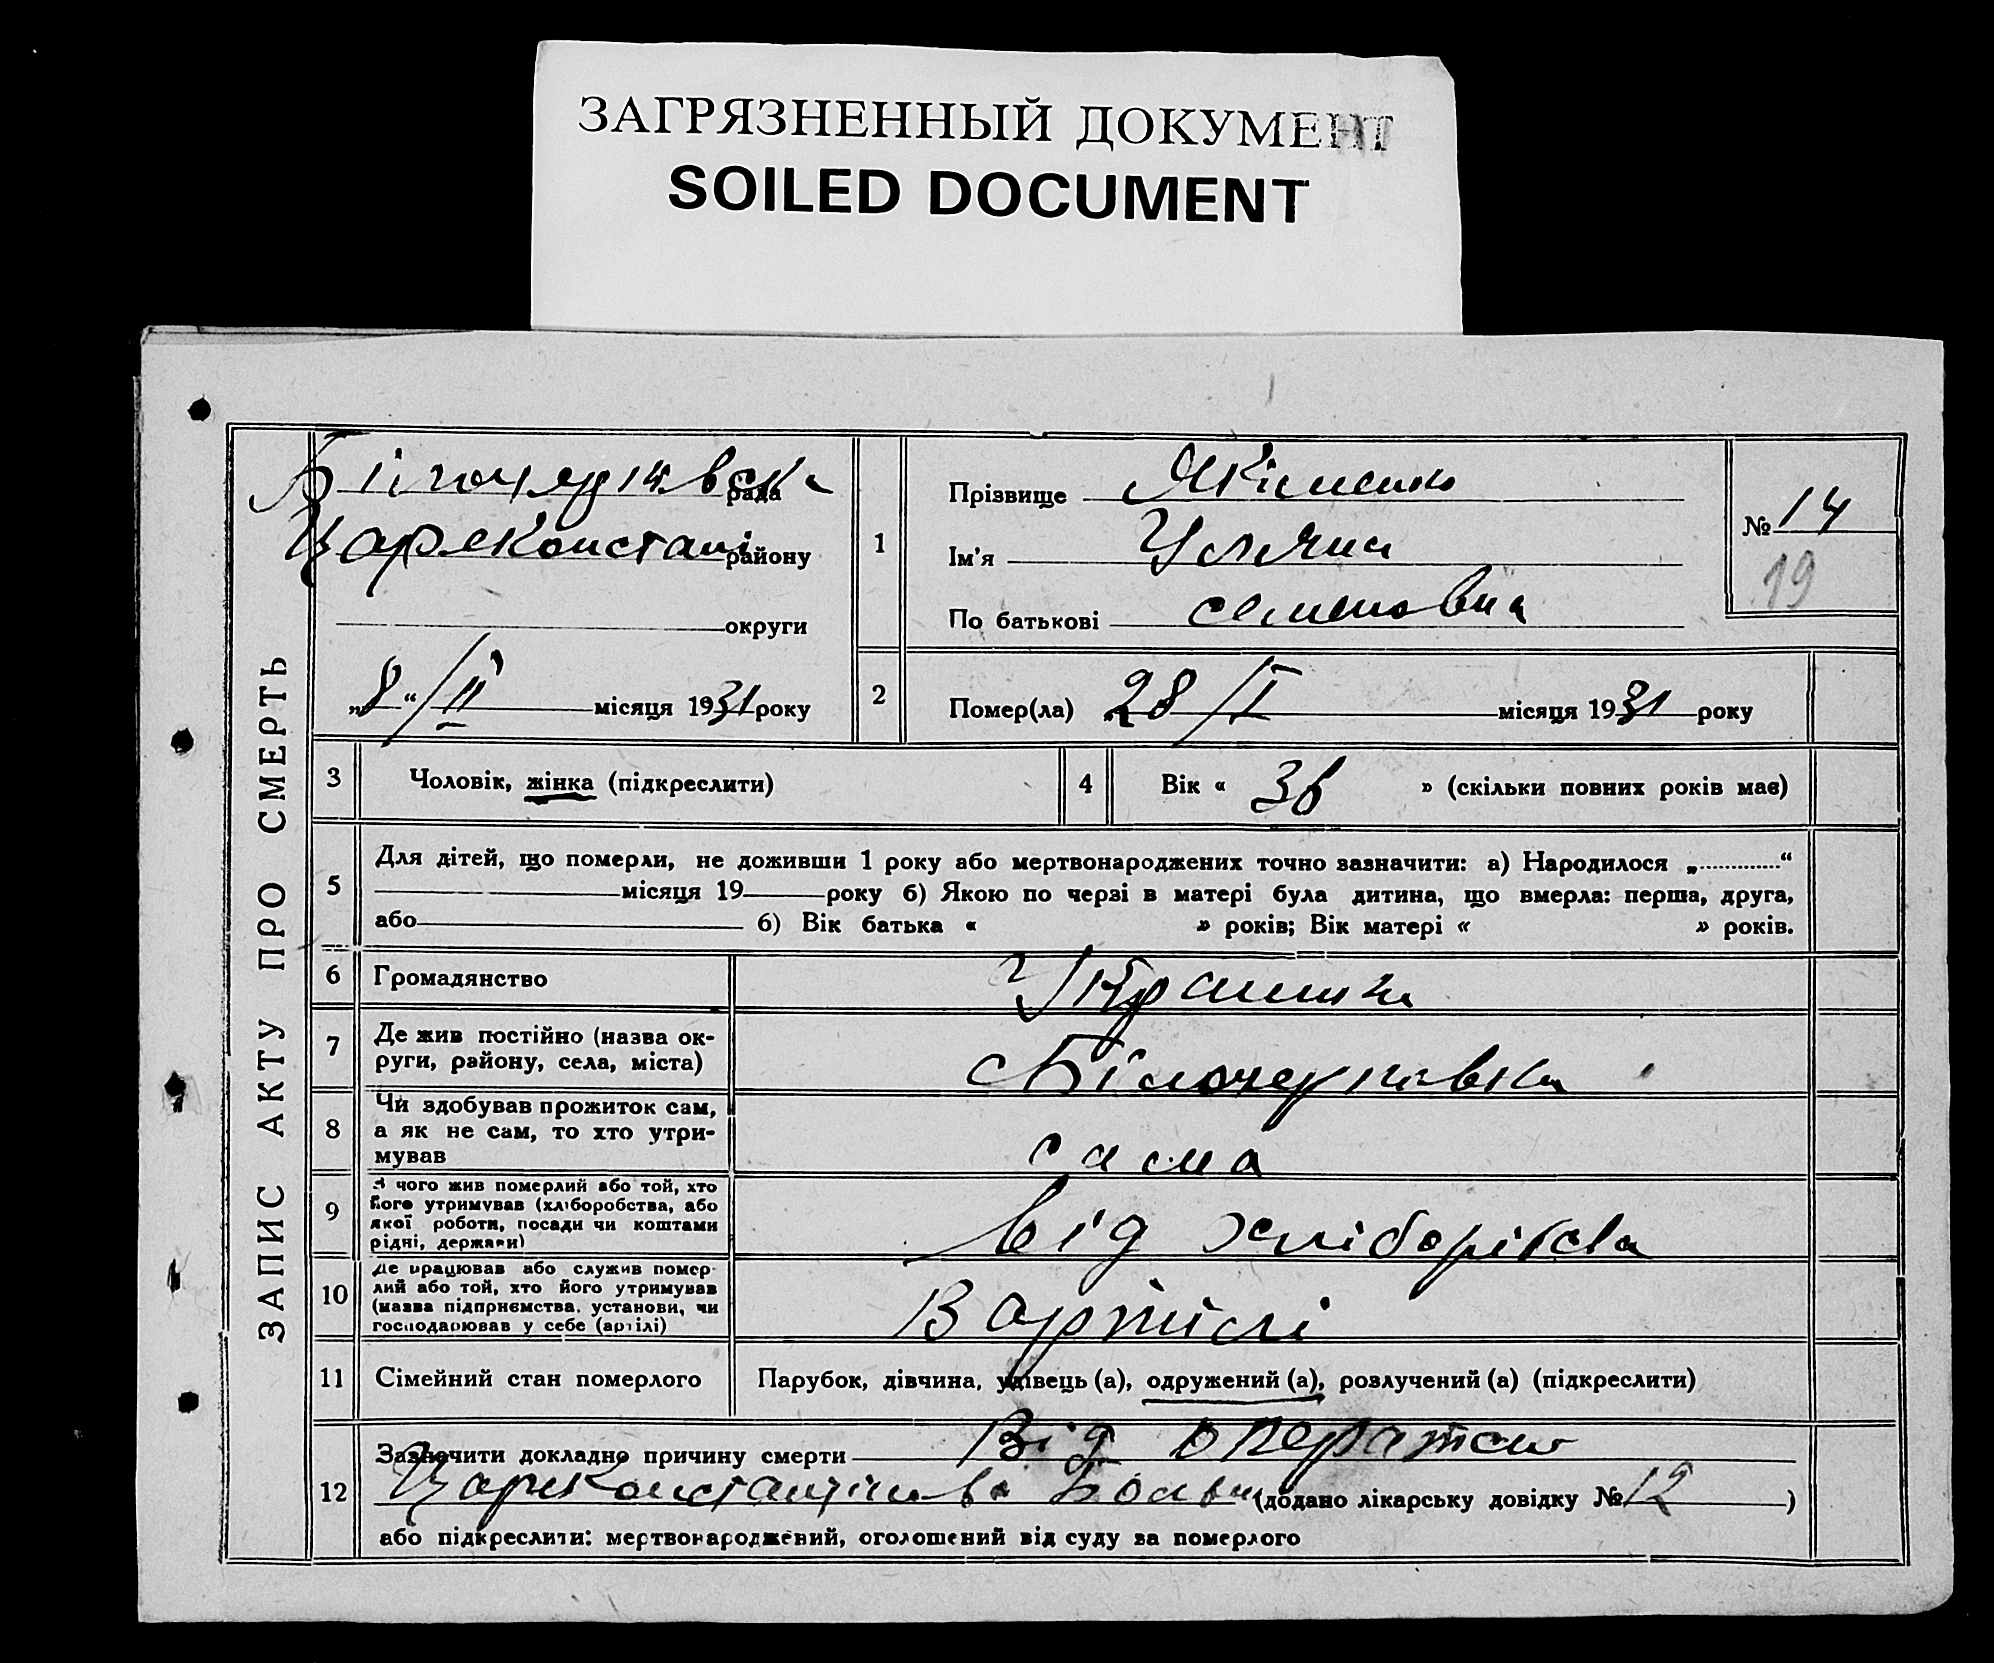 ЗАГРЯЗНЕННЫЙ ДОКУМЕНТ
SOILED DOCUMENT
ЗАПИС АКТУ ПРО СМЕРТЬ
рада
району
округи
„8“/II місяця 1931 року
1
Прізвище Якименко
Ім'я Уляна
По батькові семеновна
№ 14
19
2
Помер(ла) 28/I місяця 1931 року
3 Чоловік, жінка (підкреслити)
4 Вік « 36 » (скільки повних років має)
5 Для дітей, що померли, не доживши 1 року або мертвонароджених точно зазначити: а) Народилося „ “
місяця 19 року б) Якою по черзі в матері була дитина, що вмерла: перша, друга,
або б) Вік батька « » років; Вік матері « » років.
6 Громадянство
7 Де жив постійно (назва ок-
руги, району, села, міста)
8 Чи здобував прожиток сам,
а як не сам, то хто утри-
мував
сама
9 З чого жив померлий або той, хто
його утримував (хліборобства, або
якої роботи, посади чи коштами
рідні, держави)
від хліборібства
10 Де працював або служив помер-
лий або той, хто його утримував
(назва підприємства, установи, чи
господарював у себе (артілі)
В артілі
11 Сімейний стан померлого
Парубок, дівчина, удівець (а), одружений (а), розлучений (а) (підкреслити)
12 Зазначити докладно причину смерти Від
(додано лікарську довідку № 12 )
або підкреслити: мертвонароджений, оголошений від суду за померлого